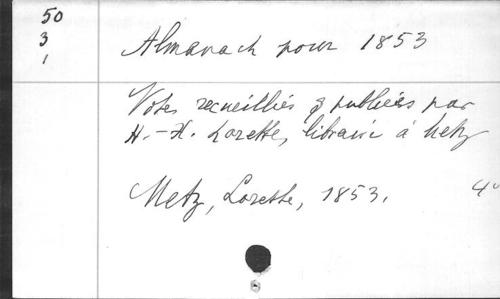 50
3
1
Almanach pour 1853
Notes recueillies & publiées par
H.-H. Lorette, libraire à Metz
Metz, Lorette, 1853.
4°